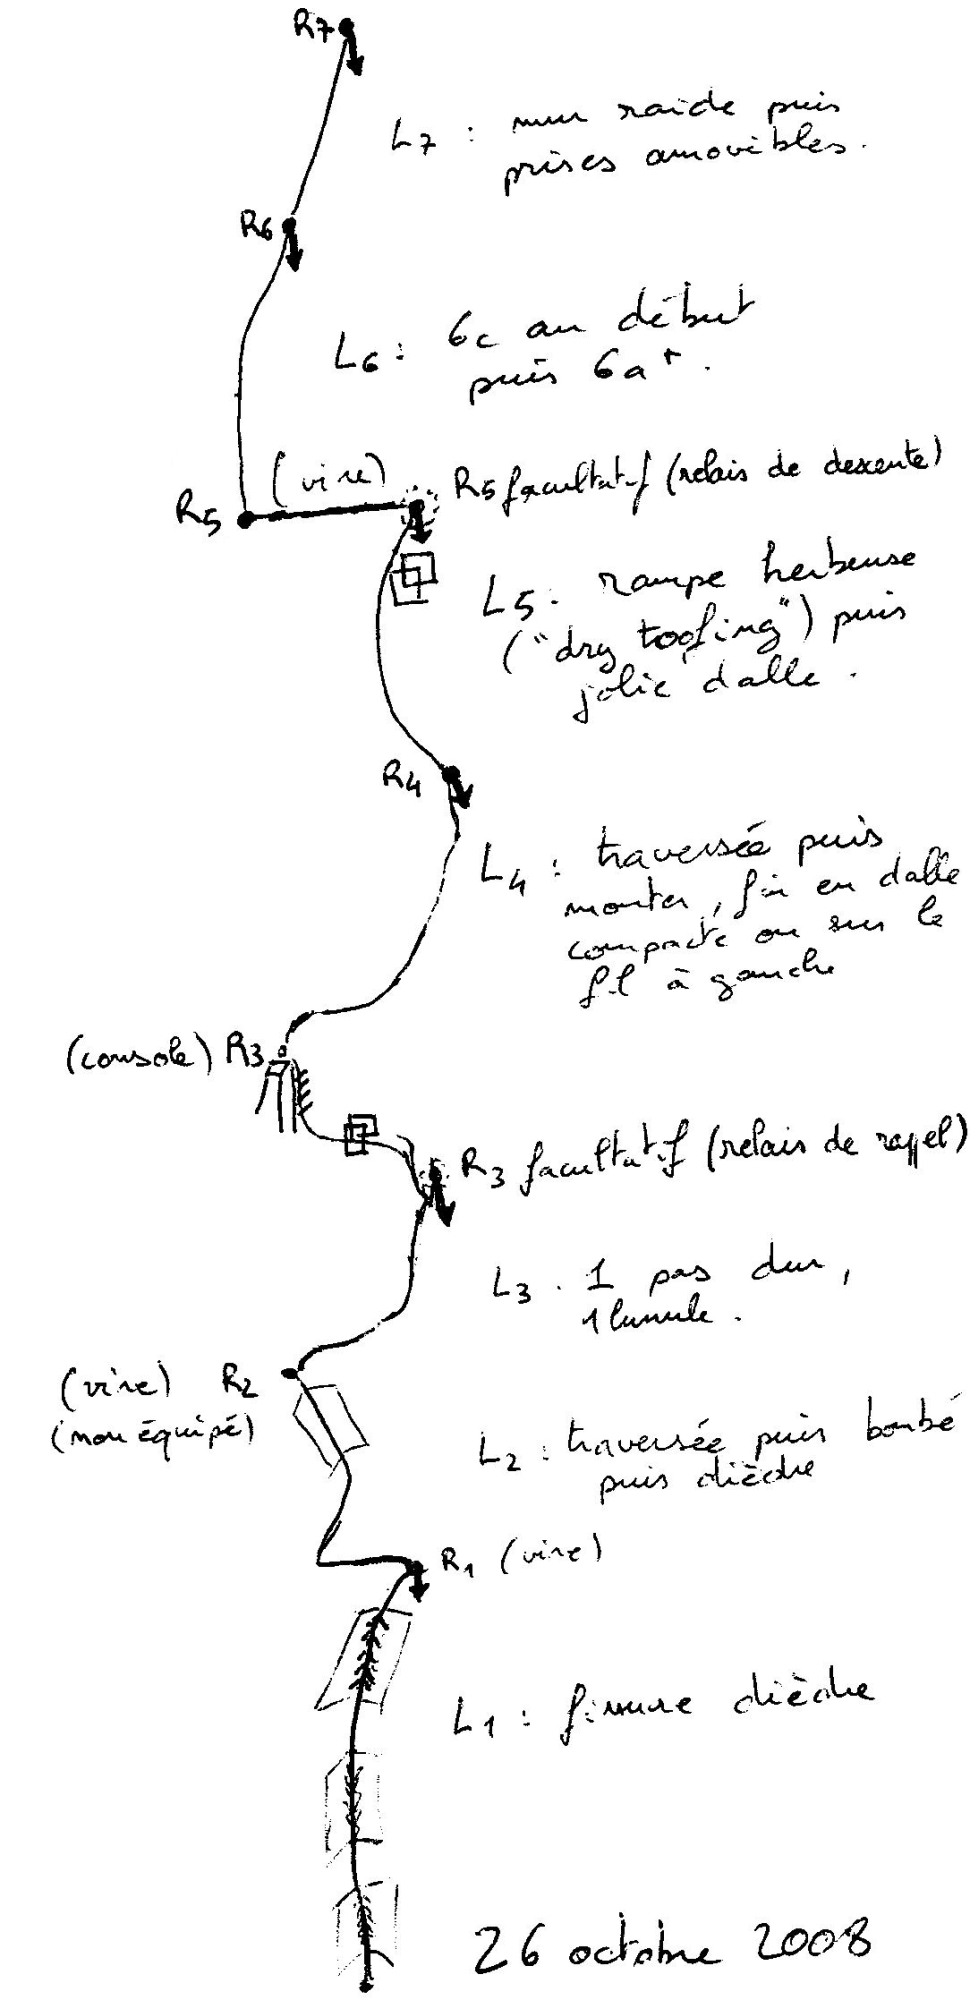 R7
L7 : mur raide puis
prises amovibles.
R6
L6 : 6c au début
puis 6a+.
(vire)
R5 facultatif (relais de descente)
R5
L5. rampe herbeuse
("dry toofing") puis
jolie dalle.
R4
L4 : traversée puis
monter, fin en dalle
compacte ou sur le
fil à gauche
(console) R3
R3 facultatif (relais de rappel)
L3. 1 pas dur,
1 lunule.
(vire) R2
(non équipé)
L2 : traversée puis bombé
puis dièdre
R1 (vire)
L1 : fissure dièdre
26 octobre 2008